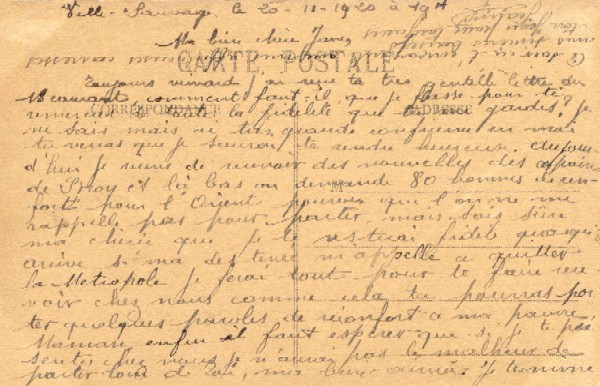 Ville-Sauvage le 20-11-1920 à 19H
Ma bien chère
CARTE POSTALE
Toujours en reçu ta très gentille lettre du
18 courant comment faut-il que je fasse pour te
CORRESPONDANCE ADRESSE
remercier de toute la fidélité que tu me gardes, je
ne sais mais ai très grande confiance en moi
tu verras que je saurai te rendre heureuse. Aujour-
d'hui je viens de recevoir des nouvelles des copains
de et là bas on demande 80 hommes de ren-
fort pour l'Orient pourvu que l'on ne me
rappelle pas pour partir, mais sois sûre
ma chérie que je te resterai fidèle quoiqu'il
arrive si ma destinée m'appelle a quitter
la Métropole je ferai tout pour te faire rece-
voir chez nous comme cela tu pourras por-
ter quelques paroles de réconfort a ma pauvre
Maman, enfin il faut espérer que si je te
chez nous je n'aurai pas le malheur de
partir loin de toi, ma bien aimée. Je termine